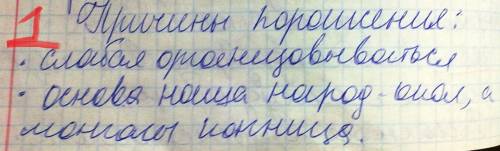 1 Причины поражения:
• слабая организовываться
• основа наша народ-опол, а
монголы конница.